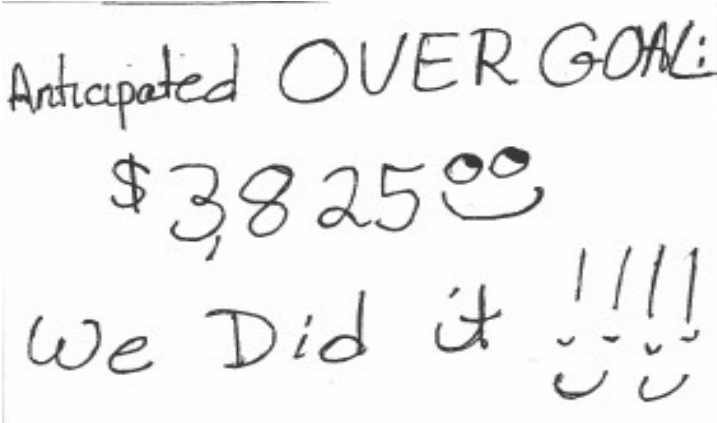 Anticipated OVER GOAL:
$3,825.00
We Did it !!!!